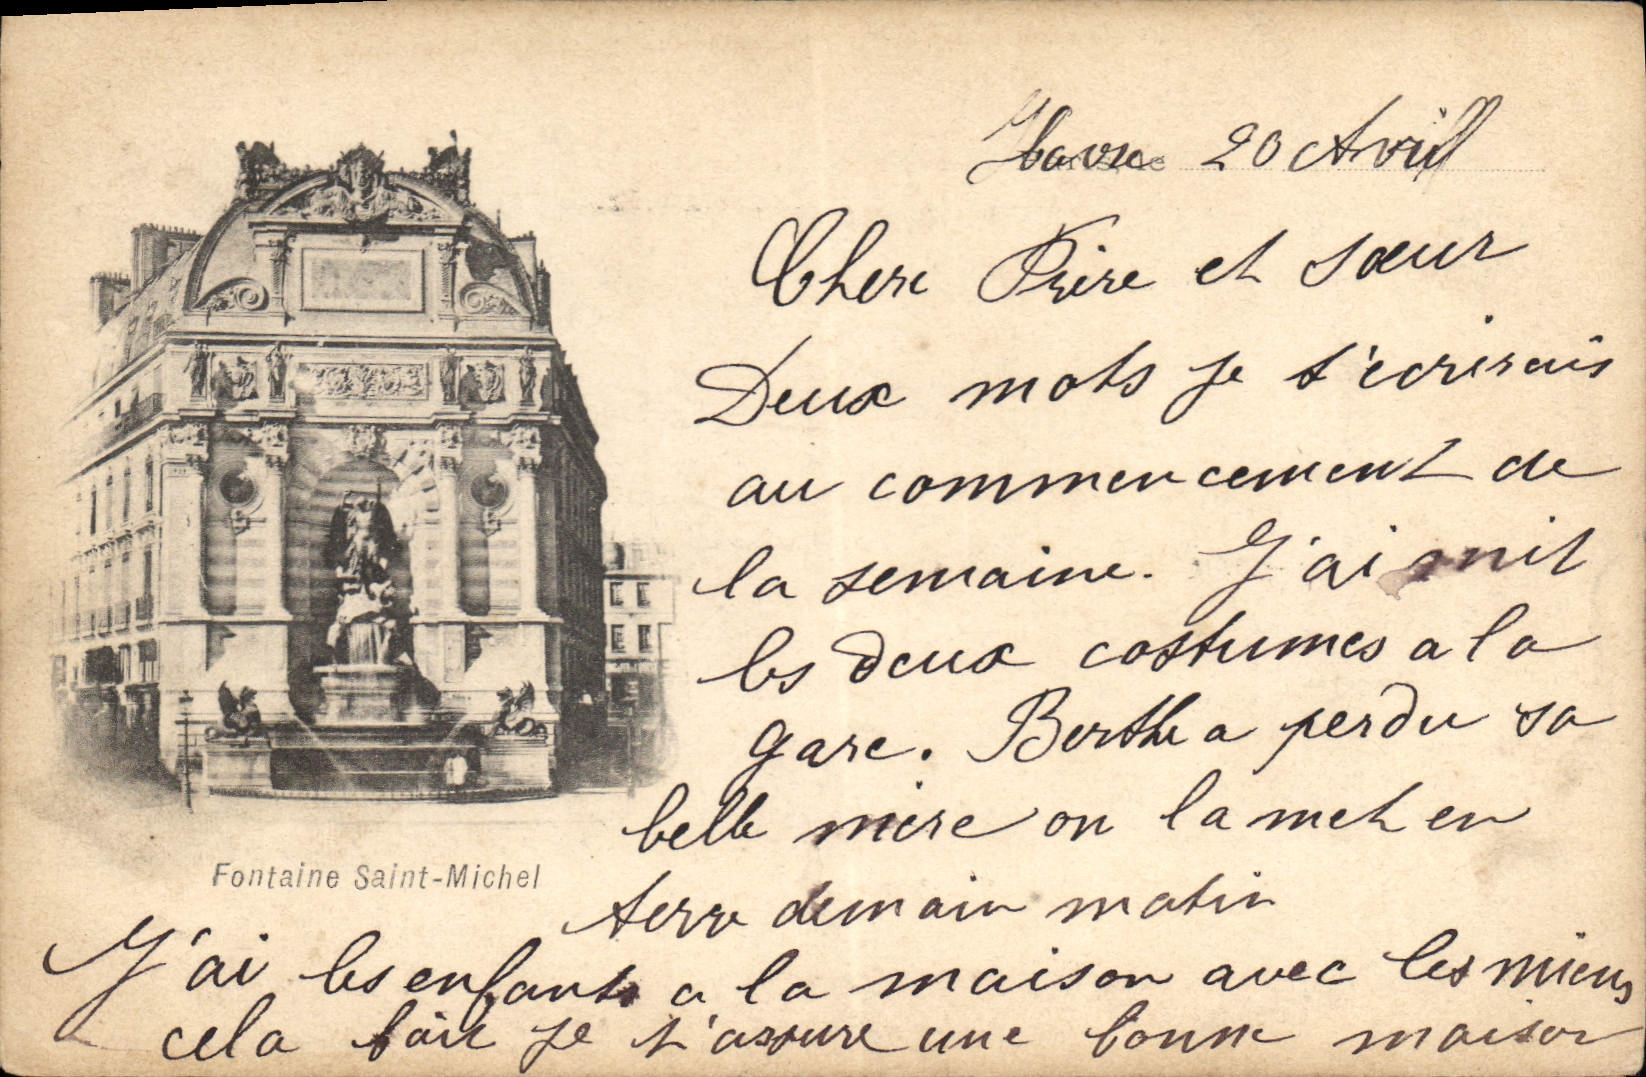 Havre 20 Avril
Chere Frère et sœur
Deux mots je t'ecrirais
au commencement de
la semaine. J'ai mit
les deux costumes a la
gare. Berthe a perdu sa
belle mère on la met en
terre demain matin
J'ai les enfants a la maison avec les miens
cela fait je t'assure une bonne maison
Fontaine Saint-Michel